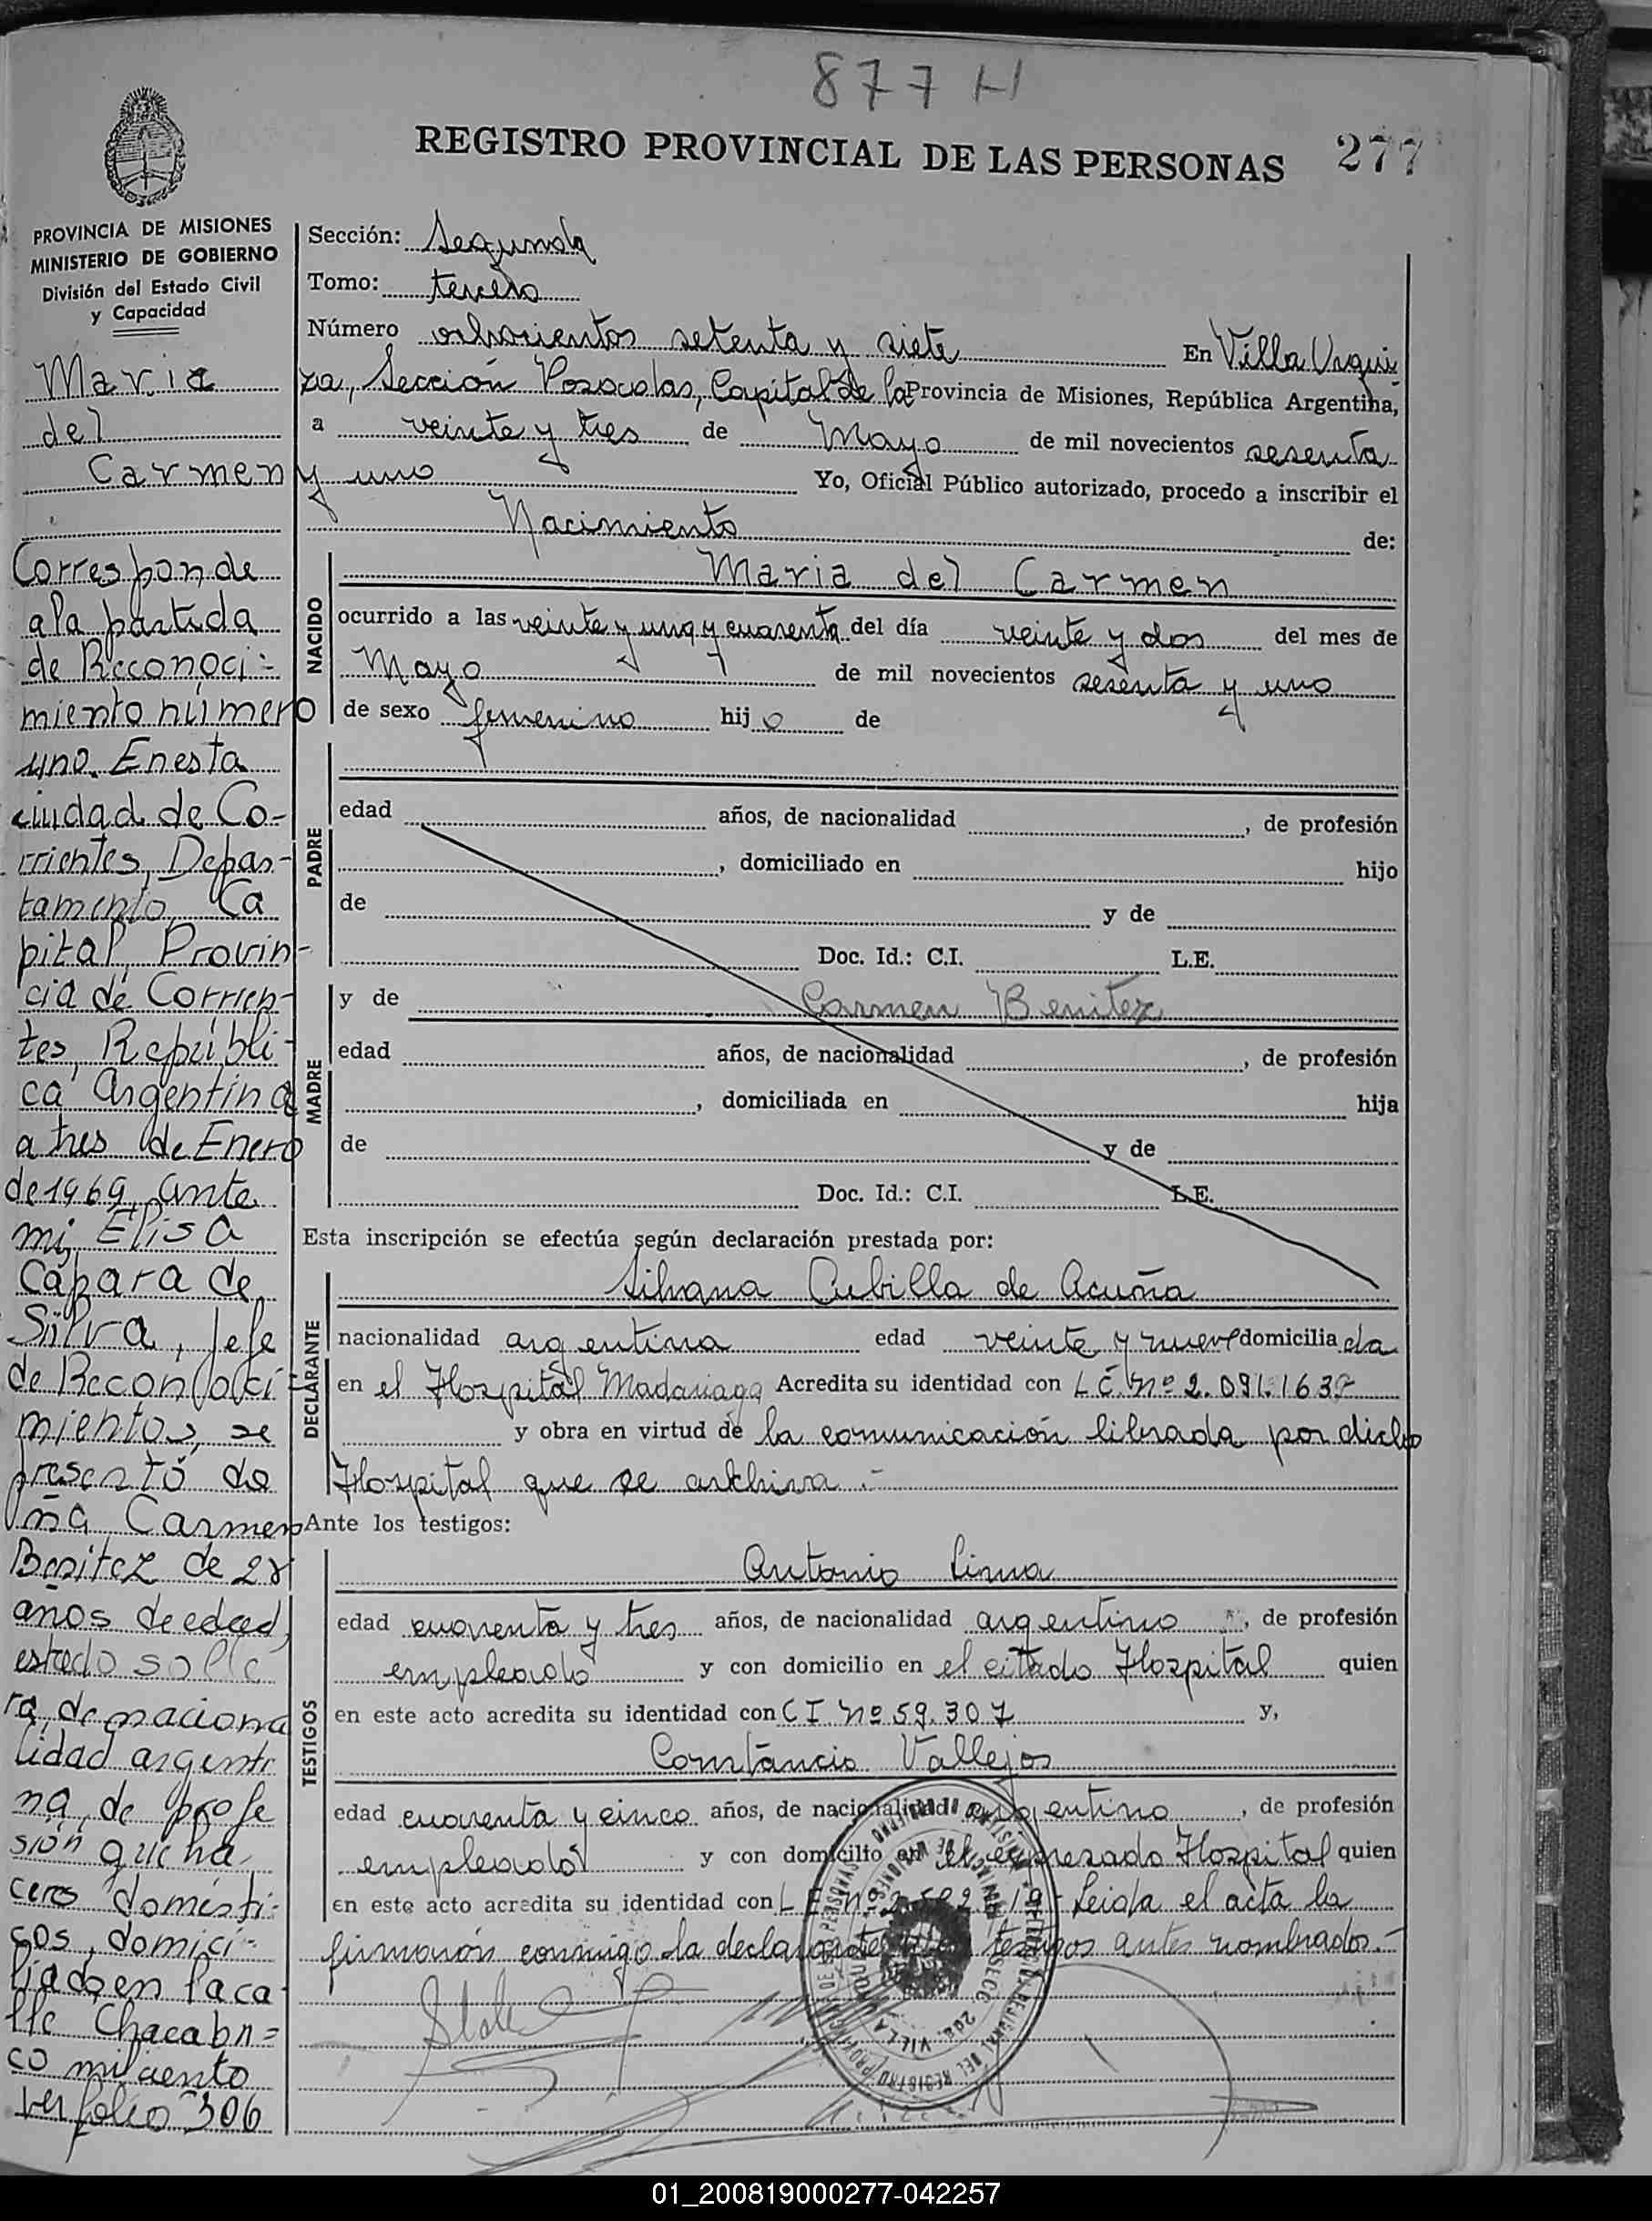 877 H
REGISTRO PROVINCIAL DE LAS PERSONAS 277
PROVINCIA DE MISIONES
MINISTERIO DE GOBIERNO
División del Estado Civil
y Capacidad
Maria
del
Carmen
Corresponde
a la partida
de Reconoci-
miento número
uno. En esta
ciudad de Co-
rrientes, Depar-
tamento Ca
pital, Provin-
cia de Corrien-
tes, Repúbli-
ca Argentina
a tres de Enero
de 1969, ante
mi, Elisa
Capara de
Silva, Jefe
de Reconoci-
mientos, se
presentó do
ña Carmen
Benitez de 28
años de edad,
estado solte
ra, de naciona
lidad argenti
na, de profe
sión queha
ceres domésti-
cos, domici-
liada en la ca
lle Chacabu=
co mil ciento
ver folio 306
Sección: Segunda
Tomo: tercero
Número ochocientos setenta y siete En Villa Urqui
za, Sección Posadas, Capital de la Provincia de Misiones, República Argentina,
a veinte y tres de Mayo de mil novecientos sesenta
y uno Yo, Oficial Público autorizado, procedo a inscribir el
Nacimiento de:
NACIDO
Maria del Carmen
ocurrido a las veinte y una y cuarenta del día veinte y dos del mes de
Mayo de mil novecientos sesenta y uno
de sexo femenino hij o de
PADRE
edad años, de nacionalidad , de profesión
, domiciliado en hijo
de y de
Doc. Id.: C.I. L.E.
MADRE
y de Carmen Benitez
edad años, de nacionalidad , de profesión
, domiciliada en hija
de y de
Doc. Id.: C.I. L.E.
Esta inscripción se efectúa según declaración prestada por:
DECLARANTE
Silvana Cubilla de Acuña
nacionalidad argentina edad veinte y nueve domicilia da
en el Hospital Madariaga Acredita su identidad con L C. Nº 2.091.1637
y obra en virtud de la comunicación librada por dicho
Hospital que se archiva.-
Ante los testigos:
TESTIGOS
Antonio Lima
edad cuarenta y tres años, de nacionalidad argentino , de profesión
empleado y con domicilio en el citado Hospital quien
en este acto acredita su identidad con C I Nº 59.307 y,
Constancio Vallejos
edad cuarenta y cinco años, de nacionalidad argentino , de profesión
empleado y con domicilio en el expresado Hospital quien
en este acto acredita su identidad con L E Nº Leida el acta la
firmarón conmigo la declarante y los testigos antes nombrados.-
01_200819000277-042257